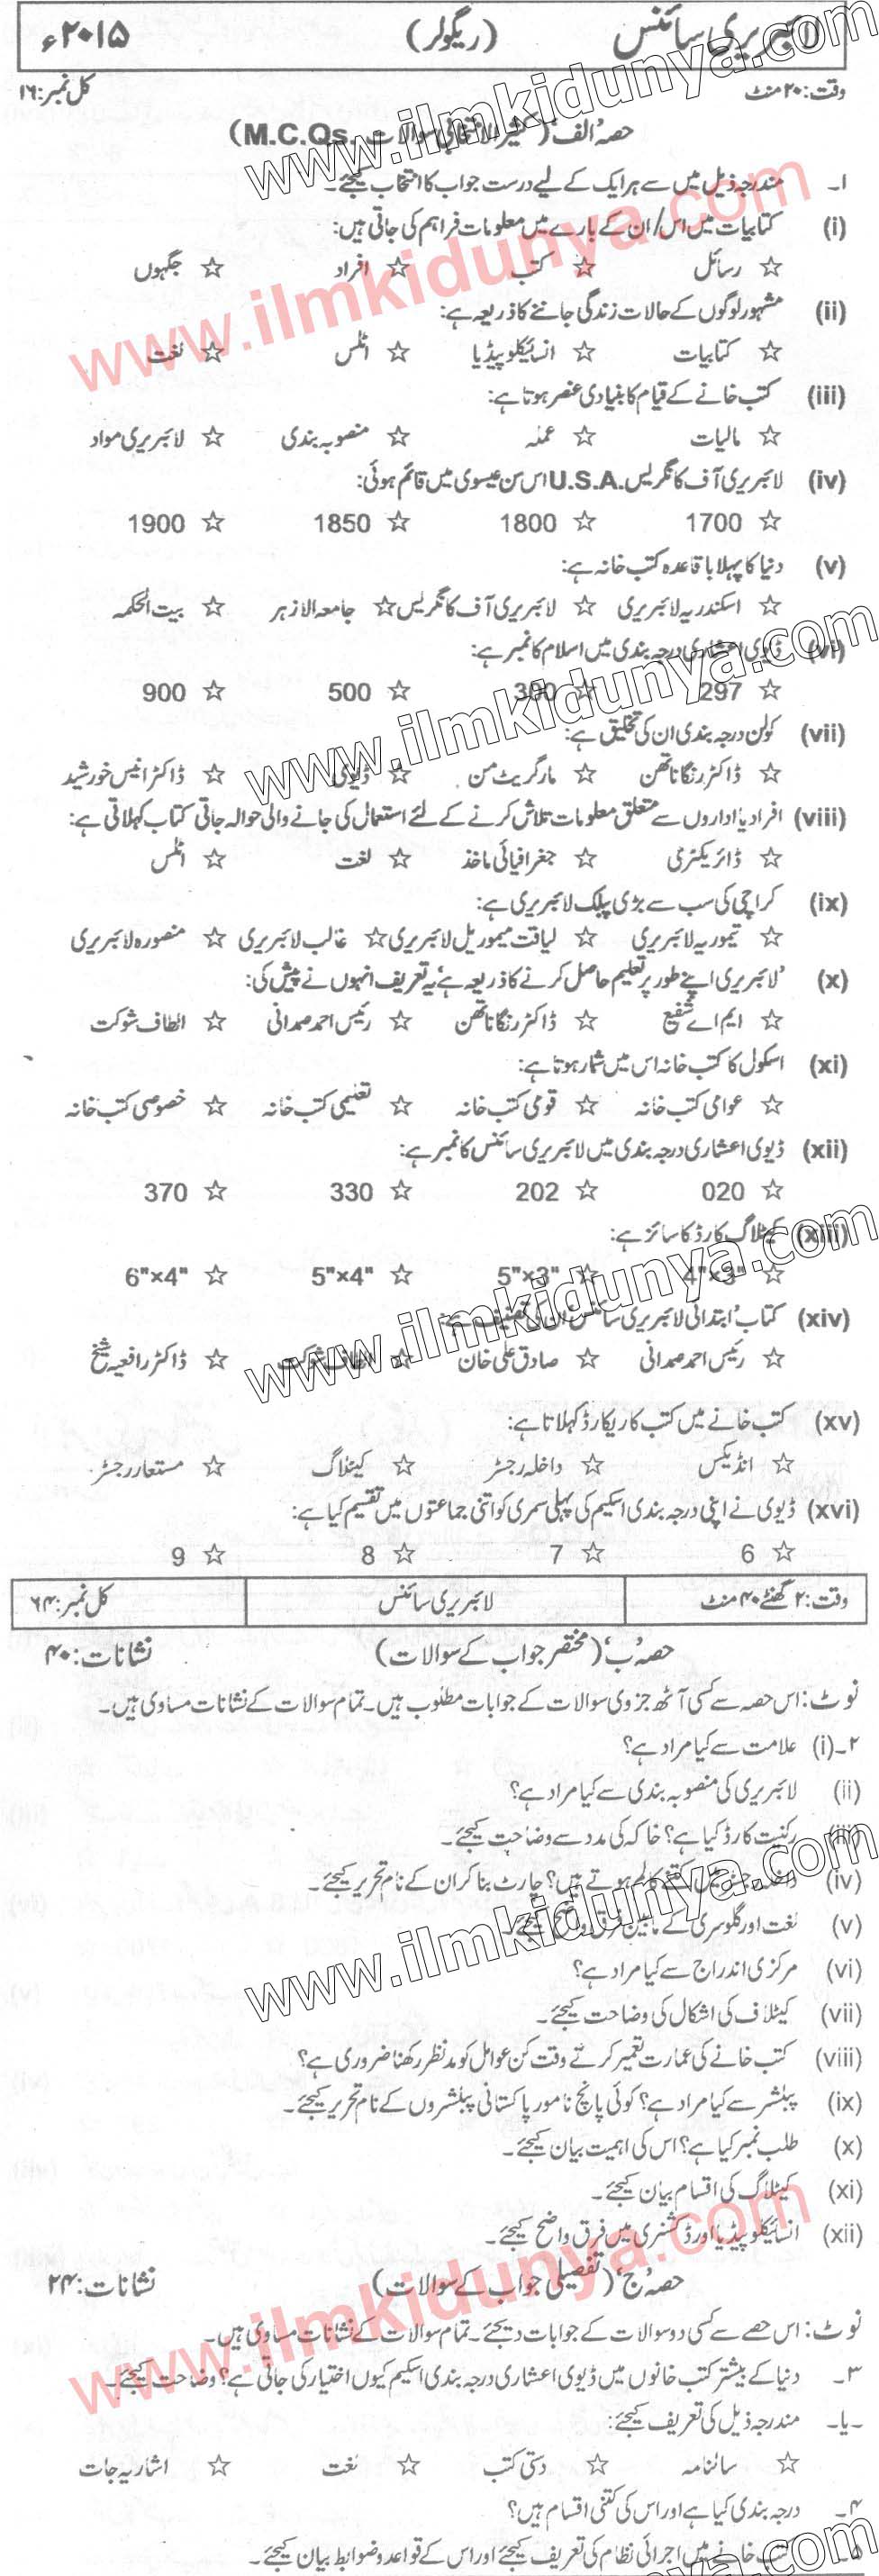 لائبریری سائنس (ریگولر) ۲۰۱۵ء
وقت: ۲۰ منٹ کل نمبر: ۱۶
حصہ 'الف' (کثیر الانتخابی سوالات .M.C.Qs)
۱۔ مندرجہ ذیل میں سے ہر ایک کے لیے درست جواب کا انتخاب کیجئے۔
(i) کتابیات میں اس/ ان کے بارے میں معلومات فراہم کی جاتی ہیں:
☆ رسائل ☆ کتب ☆ افراد ☆ جگہوں
(ii) مشہور لوگوں کے حالات زندگی جاننے کا ذریعہ ہے:
☆ کتابیات ☆ انسائیکلوپیڈیا ☆ اٹلس ☆ لغت
(iii) کتب خانے کے قیام کا بنیادی عنصر ہوتا ہے:
☆ مالیات ☆ عملہ ☆ منصوبہ بندی ☆ لائبریری مواد
(iv) لائبریری آف کانگریس .U.S.A اس سن عیسوی میں قائم ہوئی:
☆ 1700 ☆ 1800 ☆ 1850 ☆ 1900
(v) دنیا کا پہلا باقاعدہ کتب خانہ ہے:
☆ اسکندریہ لائبریری ☆ لائبریری آف کانگریس ☆ جامعہ الازہر ☆ بیت الحکمہ
(vi) ڈیوی اعشاری درجہ بندی میں اسلام کا نمبر ہے:
☆ 297 ☆ 300 ☆ 500 ☆ 900
(vii) کولن درجہ بندی ان کی تخلیق ہے:
☆ ڈاکٹر رنگاناتھن ☆ مارگریٹ من ☆ ڈیوی ☆ ڈاکٹر انیس خورشید
(viii) افراد یا اداروں سے متعلق معلومات تلاش کرنے کے لئے استعمال کی جانے والی حوالہ جاتی کتاب کہلاتی ہے:
☆ ڈائریکٹری ☆ جغرافیائی ماخذ ☆ لغت ☆ اٹلس
(ix) کراچی کی سب سے بڑی پبلک لائبریری ہے:
☆ تیموریہ لائبریری ☆ لیاقت میموریل لائبریری ☆ غالب لائبریری ☆ منصورہ لائبریری
(x) 'لائبریری اپنے طور پر تعلیم حاصل کرنے کا ذریعہ ہے' یہ تعریف انہوں نے پیش کی:
☆ ایم اے شفیع ☆ ڈاکٹر رنگاناتھن ☆ رئیس احمد صمدانی ☆ الطاف شوکت
(xi) اسکول کا کتب خانہ اس میں شمار ہوتا ہے:
☆ عوامی کتب خانہ ☆ قومی کتب خانہ ☆ تعلیمی کتب خانہ ☆ خصوصی کتب خانہ
(xii) ڈیوی اعشاری درجہ بندی میں لائبریری سائنس کا نمبر ہے:
☆ 020 ☆ 202 ☆ 330 ☆ 370
(xiii) کیٹلاگ کارڈ کا سائز ہے:
☆ 4"×3" ☆ 5"×3" ☆ 5"×4" ☆ 6"×4"
(xiv) کتاب 'ابتدائی لائبریری سائنس' ان کی تصنیف ہے:
☆ رئیس احمد صمدانی ☆ صادق علی خان ☆ الطاف شوکت ☆ ڈاکٹر رافعیہ شیخ
(xv) کتب خانے میں کتب کا ریکارڈ کہلاتا ہے:
☆ انڈیکس ☆ داخلہ رجسٹر ☆ کیٹلاگ ☆ مستعار رجسٹر
(xvi) ڈیوی نے اپنی درجہ بندی اسکیم کی پہلی سمری کو اتنی جماعتوں میں تقسیم کیا ہے:
☆ 6 ☆ 7 ☆ 8 ☆ 9
وقت: ۲ گھنٹے ۴۰ منٹ لائبریری سائنس کل نمبر: ۶۴
حصہ 'ب' (مختصر جواب کے سوالات) نشانات: ۴۰
نوٹ: اس حصہ سے کسی آٹھ جزوی سوالات کے جوابات مطلوب ہیں۔ تمام سوالات کے نشانات مساوی ہیں۔
۲۔ (i) علامت سے کیا مراد ہے؟
(ii) لائبریری کی منصوبہ بندی سے کیا مراد ہے؟
(iii) رکنیت کارڈ کیا ہے؟ خاکہ کی مدد سے وضاحت کیجئے۔
(iv) داخلہ رجسٹر میں کتنے کالم ہوتے ہیں؟ چارٹ بنا کر ان کے نام تحریر کیجئے۔
(v) لغت اور گلوسری کے مابین فرق واضح کیجئے۔
(vi) مرکزی اندراج سے کیا مراد ہے؟
(vii) کیٹلاگ کی اشکال کی وضاحت کیجئے۔
(viii) کتب خانے کی عمارت تعمیر کرتے وقت کن عوامل کو مدنظر رکھنا ضروری ہے؟
(ix) پبلشر سے کیا مراد ہے؟ کوئی پانچ نامور پاکستانی پبلشروں کے نام تحریر کیجئے۔
(x) طلب نمبر کیا ہے؟ اس کی اہمیت بیان کیجئے۔
(xi) کیٹلاگ کی اقسام بیان کیجئے۔
(xii) انسائیکلوپیڈیا اور ڈکشنری میں فرق واضح کیجئے۔
حصہ 'ج' (تفصیلی جواب کے سوالات) نشانات: ۲۴
نوٹ: اس حصے سے کسی دو سوالات کے جوابات دیجئے۔ تمام سوالات کے نشانات مساوی ہیں۔
۳۔ دنیا کے بیشتر کتب خانوں میں ڈیوی اعشاری درجہ بندی اسکیم کیوں اختیار کی جاتی ہے؟ وضاحت کیجئے۔
۔یا۔ مندرجہ ذیل کی تعریف کیجئے:
☆ سالنامہ ☆ دستی کتب ☆ لغت ☆ اشاریہ جات
۴۔ درجہ بندی کیا ہے اور اس کی کتنی اقسام ہیں؟
۵۔ کتب خانے میں اجرائی نظام کی تعریف کیجئے اور اس کے قواعد و ضوابط بیان کیجئے۔
www.ilmkidunya.com
www.ilmkidunya.com
www.ilmkidunya.com
www.ilmkidunya.com
www.ilmkidunya.com
www.ilmkidunya.com
www.ilmkidunya.com